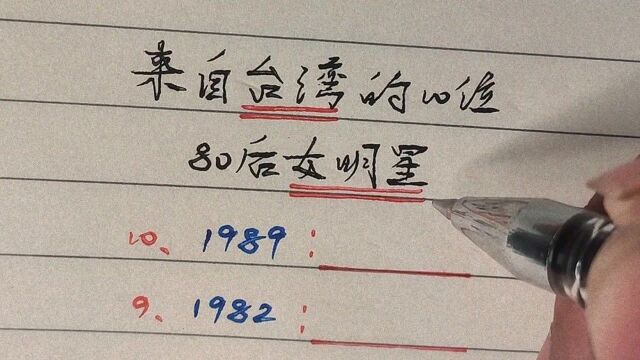 来自台湾的10位
80后女明星
10、1989：
9、1982：